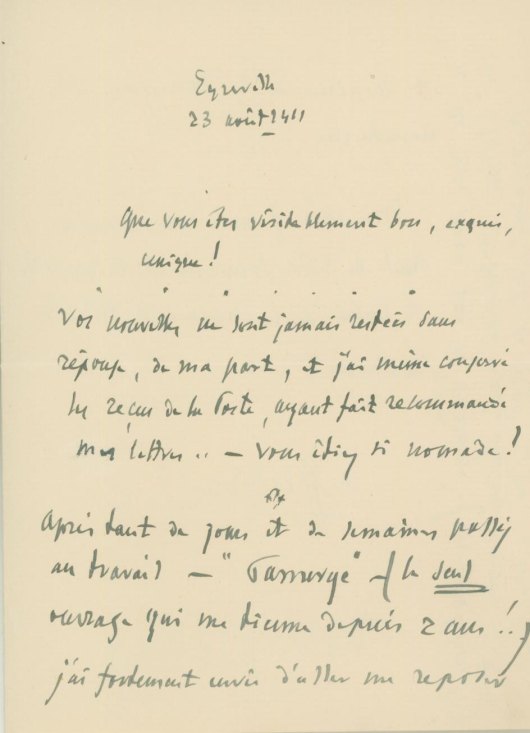 Egreville
23 août 1911
Que vous êtes visiblement bon, exquis,
unique !
Vos nouvelles ne sont jamais restées sans
réponse, de ma part, et j'ai même conservé
les reçus de la Poste, ayant fait recommandé
mes lettres .. — vous étiez si nomade !
Après tant de jours et de semaines passés
au travail — "Panurge" — (le seul
ouvrage qui me tienne depuis 2 ans !!)
j'ai fortement envie d'aller me reposer